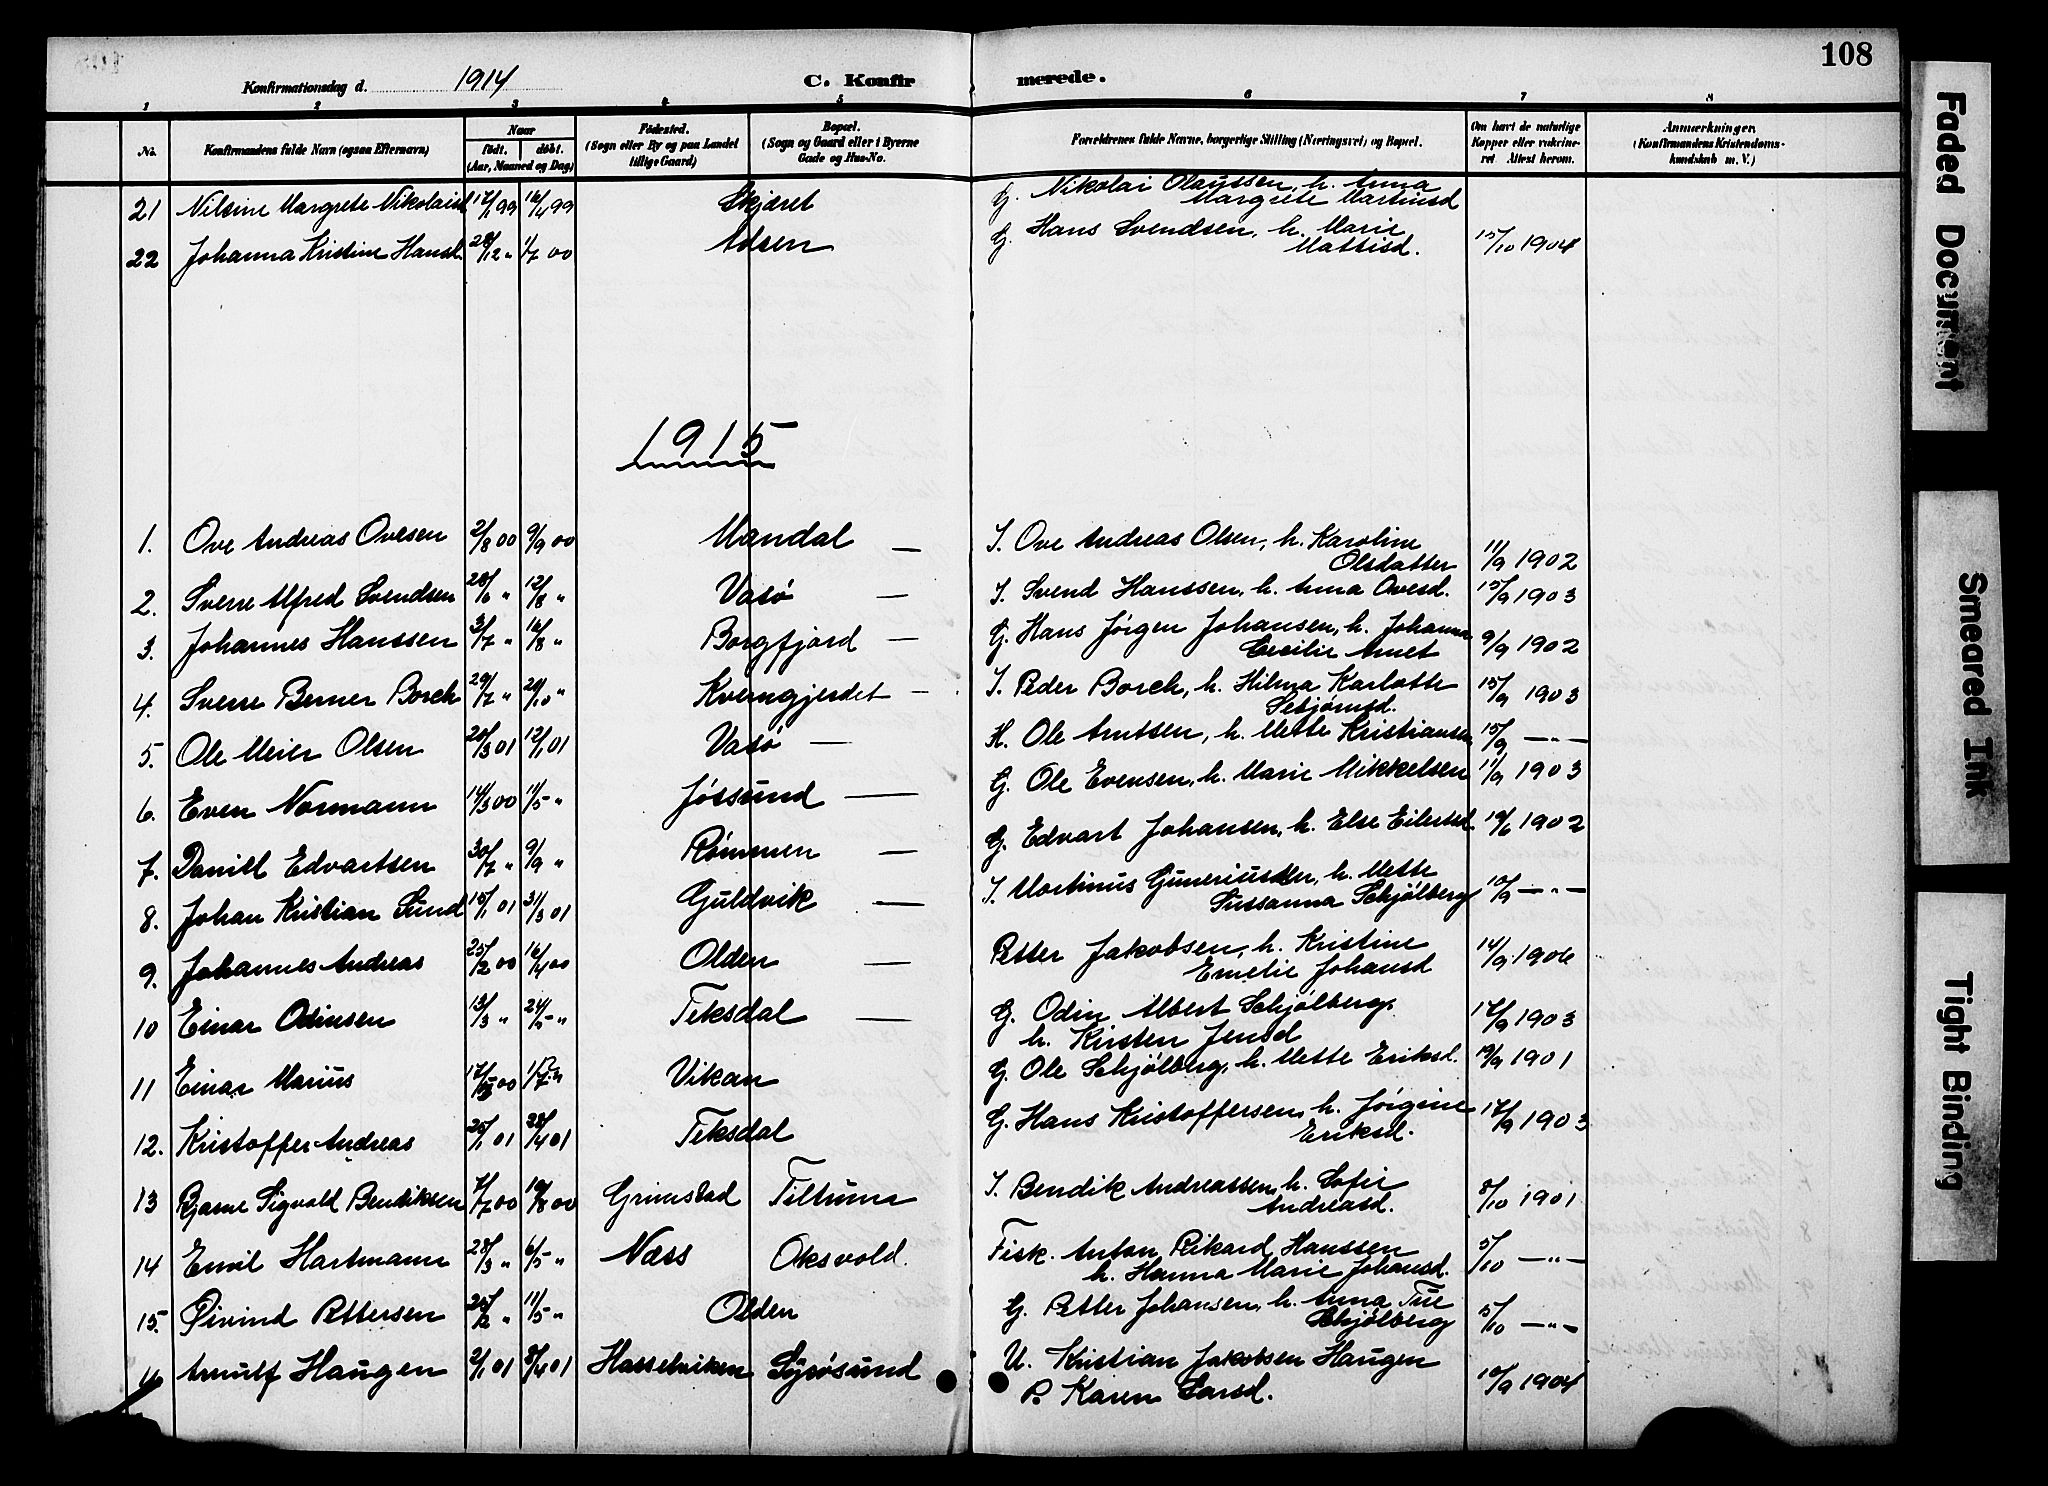 108
Konfirmationsdag d. 1914 C. Konfirmerede.
1 2 3 4 5 6 7 8
No. Konfirmandens fulde Navn (ogsaa Efternavn) Naar født. døbt. (Aar, Maaned og Dag) Fødested. (Sogn eller By og paa Landet tillige Gaard) Bopæl. (Sogn og Gaard eller i Byerne Gade og Hus-No. Forældrenes fulde Navne, borgerlige Stilling (Næringsvei) og Bopæl. Om havt de naturlige Kopper eller vakcineret. Attest herom. Anmærkninger. (Konfirmandens Kristendomskundskab m. V.)
21 Nilsine Margrete Nikolaisd 17/1 99 16/4 99 Skjæret G. Nikolai Olaussen, h. Anna
Margrete Martinisd
22 Johanna Kristine Hansd. 28/12 " 1/7 00 Adsen G. Hans Svendsen, h. Marie
Mattisd. 15/10 1904
1915
1. Ove Andreas Ovesen 2/8 00 9/9 00 Mandal — I. Ove Andreas Olsen, h. Karoline
Olsdatter 11/9 1902
2. Sverre Alfred Svendsen 28/6 " 12/8 " Vasø — I. Svend Hanssen, h. Anna Ovesd. 15/9 1903
3. Johannes Hanssen 3/7 " 16/8 " Borgfjord — G. Hans Jørgen Johansen, h. Johanna
Cecilie Arnet 9/9 1902
4. Sverre Berner Borch 29/7 " 28/10 " Kverngjerdet — I. Peder Borch, h. Hilma Karlotte
15/9 1903
5. Ole Meier Olsen 20/3 01 12/1 01 Vasø — H. Ole Arntsen, h. Mette Kristiansen 15/9 —"—
6. Even Normann 14/3 00 11/5 " Jøssund — G. Ole Evensen, h. Marie Mikkelsen 11/9 1903
7. Daniel Edvartsen 30/7 " 9/9 " Rømmen — G. Edvart Johansen, h. Else Eilertsd. 19/6 1902
8. Johan Kristian Sund 15/1 01 31/3 01 Guldvik — I. Martinus Guneriussen, h. Mette
Sussanna Schjølberg 10/9 —"—
9. Johannes Andreas 25/2 00 16/4 00 Olden — Petter Jakobsen, h. Kristine
Emelie Johansd 14/9 1906
10 Einar Odinsen 13/3 " 24/5 " Teksdal — G. Odin Albert Schjølberg,
h. Kirsten Jensd 17/9 1903
11 Einar Marius 17/5 00 1/7 " Vikan G. Ole Schjølberg, h. Mette Eriksd. 19/9 1901
12. Kristoffer Andreas 25/1 01 28/4 01 Teksdal G. Hans Kristoffersen, h. Jørgine
Eriksd. 17/9 1903
13 Bjarne Sigvald Bendiksen 7/7 00 19/8 00 Grimstad Tiltum I. Bendik Andreassen, h. Sofie
Andreasd. 8/10 1901
14 Emil Hartmann 28/3 " 6/5 " Næss Oksvold. Fisk. Anton Rikard Hanssen
h. Hanna Marie Johansd. 5/10 —"—
15. Øivind Pettersen 25/2 " 11/5 " Olden G. Petter Johansen, h. Anna Tue
Schjølberg 5/10 —"—
Arnulf Haugen 2/1 01 8/4 01 Hasselviken Syrøsund U. Kristian Jakobsen Haugen
P. Karen Larsd. 10/9 1904
Faded Document
Smeared Ink
Tight Binding